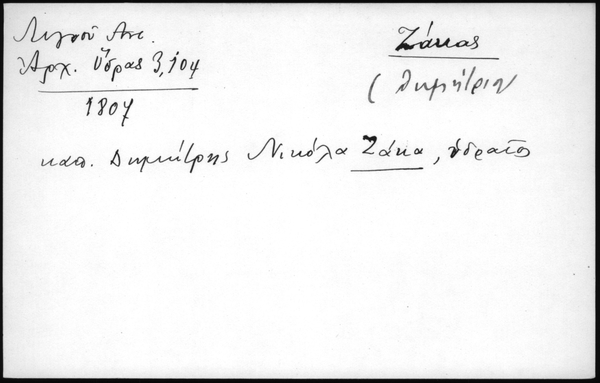 Λιγνοῦ Ἀντ.
Ἀρχ. Ὕδρας 3,104
1807
Ζάκας
( Δημήτριος
καπ. Δημήτρης Νικόλα Ζάκα, ὑδραῖος